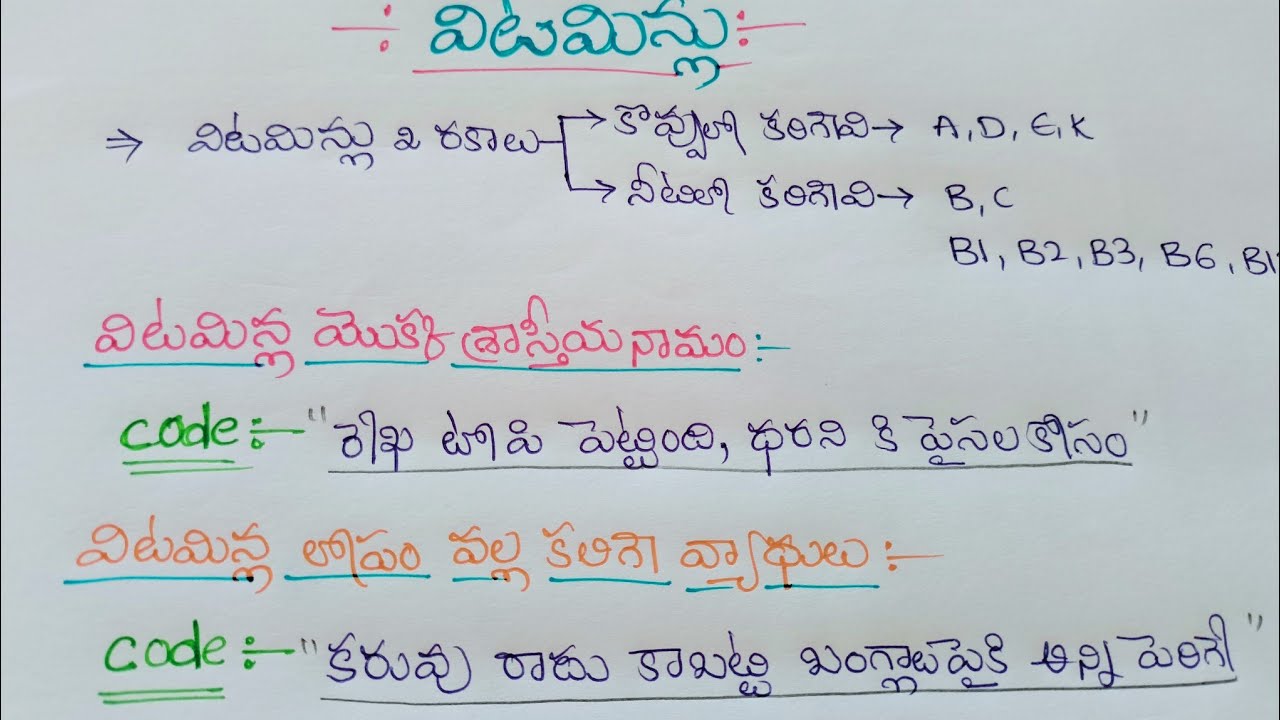 -: విటమిన్లు :-
⇒ విటమిన్లు 2 రకాలు → కొవ్వులో కరిగేవి → A, D, E, K
→ నీటిలో కరిగేవి → B, C
B1, B2, B3, B6, B1
విటమిన్ల యొక్క శాస్త్రీయ నామం :-
code :- "రేఖ టోపి పెట్టింది, ధరని కి పైసల కోసం"
విటమిన్ల లోపం వల్ల కలిగే వ్యాధులు :-
code :- "కరువు రాదు కాబట్టి బంగ్లాపైకి అన్ని పెరిగే"